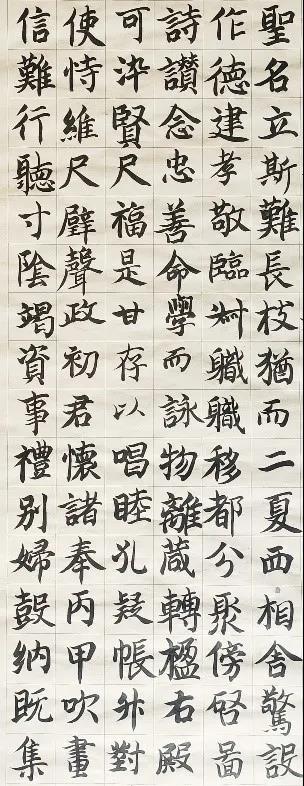 聖名立斯難長枝猶而二夏西相舍驚設
作德建孝敬臨職職移都分聚傍啓圖
詩讃念忠善命學而詠物離蔵轉楹右殿
可染賢尺福是甘存以唱睦孔疑帳對
使恃維尺璧聲政初君懷諸奉丙甲吹畫
信難行聽寸陰竭資事禮別婦鼓納既集